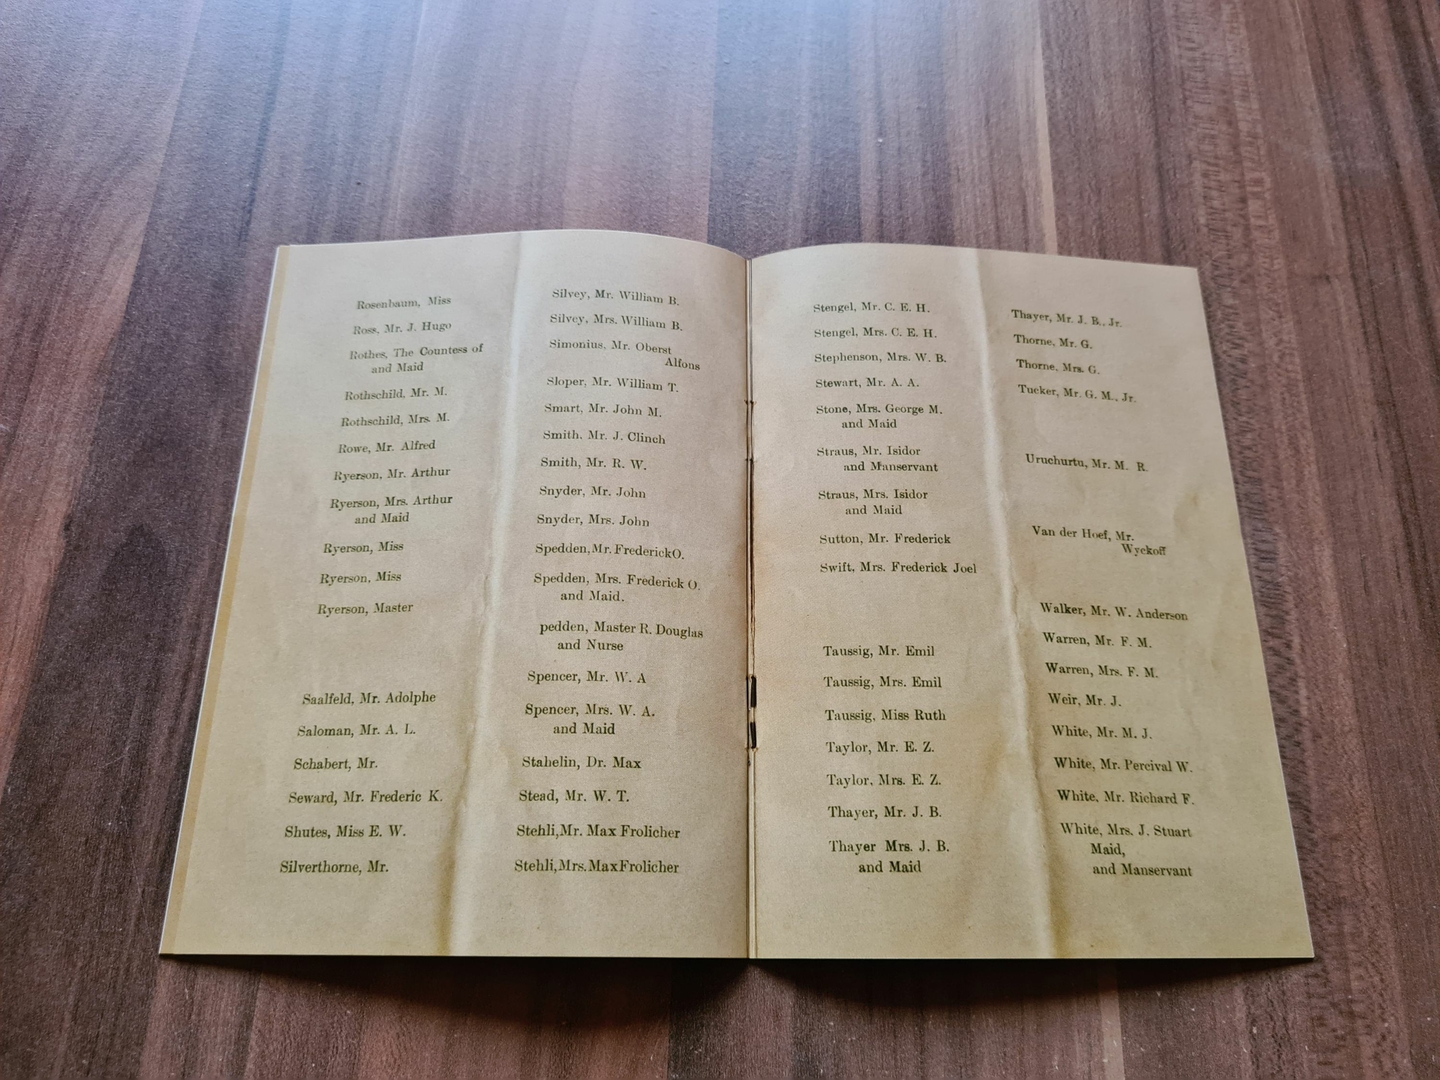 Rosenbaum, Miss
Ross, Mr. J. Hugo
Rothes, The Countess of
and Maid
Rothschild, Mr. M.
Rothschild, Mrs. M.
Rowe, Mr. Alfred
Ryerson, Mr. Arthur
Ryerson, Mrs. Arthur
and Maid
Ryerson, Miss
Ryerson, Miss
Ryerson, Master
Saalfeld, Mr. Adolphe
Saloman, Mr. A. L.
Schabert, Mr.
Seward, Mr. Frederic K.
Shutes, Miss E. W.
Silverthorne, Mr.
Silvey, Mr. William B.
Silvey, Mrs. William B.
Simonius, Mr. Oberst
Alfons
Sloper, Mr. William T.
Smart, Mr. John M.
Smith. Mr. J. Clinch
Smith, Mr. R. W.
Snyder, Mr. John
Snyder, Mrs. John
Spedden, Mr. Frederick O.
Spedden, Mrs. Frederick O.
and Maid.
pedden, Master R. Douglas
and Nurse
Spencer, Mr. W. A
Spencer, Mrs. W. A.
and Maid
Stahelin, Dr. Max
Stead, Mr. W. T.
Stehli, Mr. Max Frolicher
Stehli, Mrs. Max Frolicher
Stengel, Mr. C. E. H.
Stengel, Mrs. C. E. H.
Stephenson, Mrs. W. B.
Stewart, Mr. A. A.
Stone, Mrs. George M.
and Maid
Straus, Mr. Isidor
and Manservant
Straus, Mrs. Isidor
and Maid
Sutton, Mr. Frederick
Swift, Mrs. Frederick Joel
Taussig, Mr. Emil
Taussig, Mrs. Emil
Taussig, Miss Ruth
Taylor, Mr. E. Z.
Taylor, Mrs. E. Z.
Thayer, Mr. J. B.
Thayer Mrs. J. B.
and Maid
Thayer, Mr. J. B., Jr.
Thorne, Mr. G.
Thorne, Mrs. G.
Tucker, Mr. G. M., Jr.
Uruchurtu, Mr. M. R.
Van der Hoef, Mr.
Wyckoff
Walker, Mr. W. Anderson
Warren, Mr. F. M.
Warren, Mrs. F. M.
Weir, Mr. J.
White, Mr. M. J.
White, Mr. Percival W.
White, Mr. Richard F.
White, Mrs. J. Stuart
Maid,
and Manservant